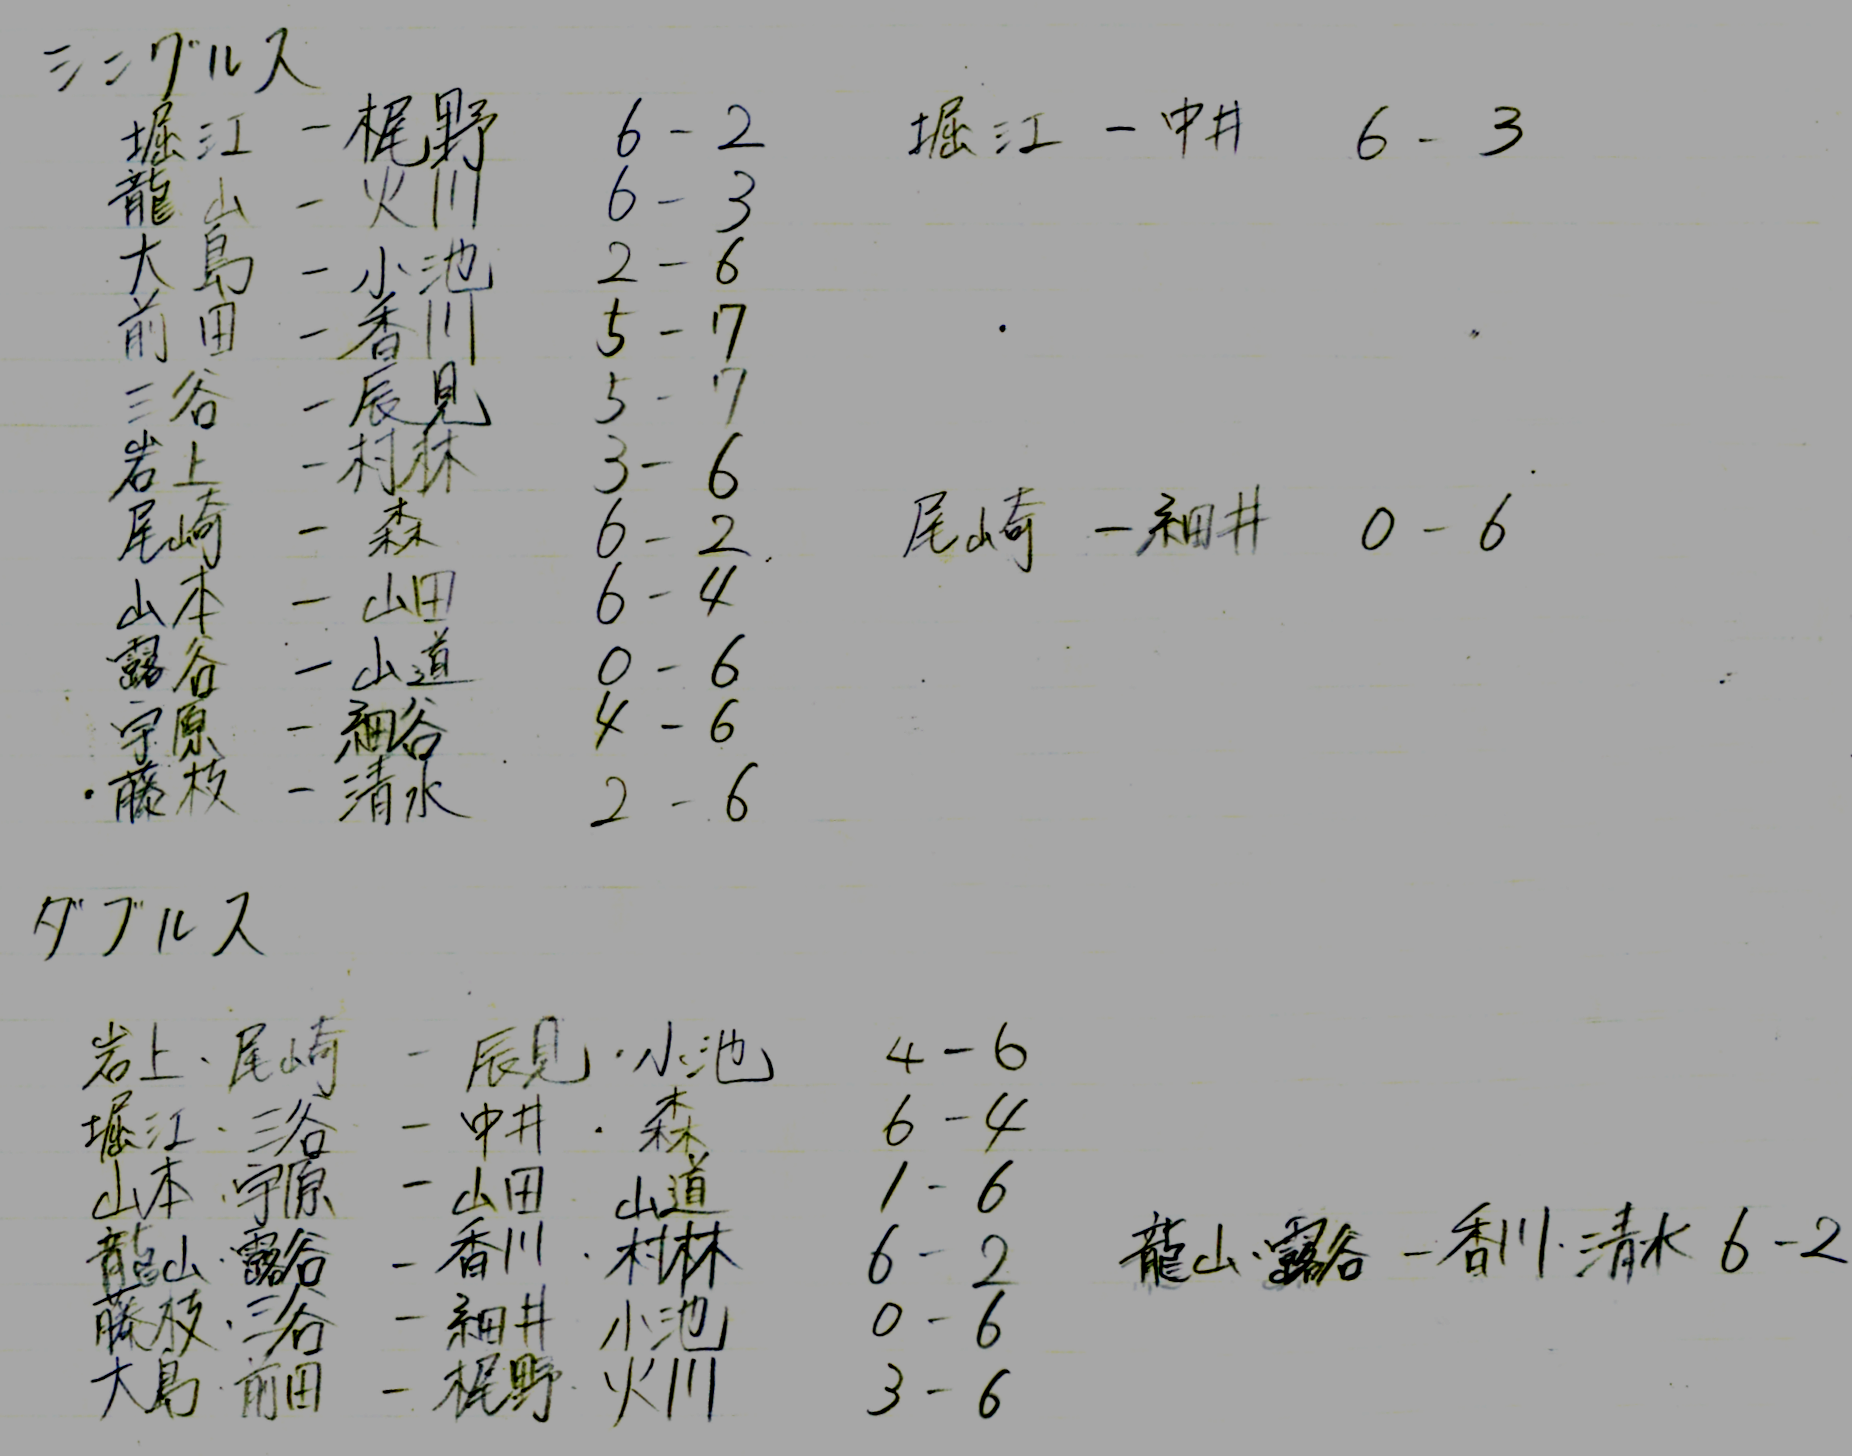 シングルス
堀江 - 梶野 6 - 2 堀江 - 中井 6 - 3
龍山 - 火川 6 - 3
大島 - 小池 2 - 6
前田 - 香川 5 - 7
三谷 - 辰見 5 - 7
岩上 - 村林 3 - 6
尾崎 - 森 6 - 2 尾崎 - 細井 0 - 6
山本 - 山田 6 - 4
露谷 - 山道 0 - 6
宇原 - 細谷 4 - 6
・藤枝 - 清水 2 - 6
ダブルス
岩上・尾崎 - 辰見・小池 4 - 6
堀江・三谷 - 中井・森 6 - 4
山本・宇原 - 山田 山道 1 - 6
龍山・露谷 - 香川・村林 6 - 2 龍山・露谷 - 香川・清水 6 - 2
藤枝・三谷 - 細井 小池 0 - 6
大島・前田 - 梶野・火川 3 - 6